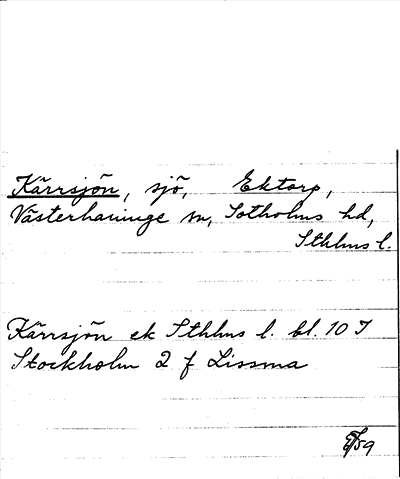 Kärrsjön, sjö, Ektorp,
Västerhaninge sn, Sotholms hd,
Sthlms l.
Kärrsjön ek Sthlms l. bl. 10 I
Stockholm 2 f Lissma